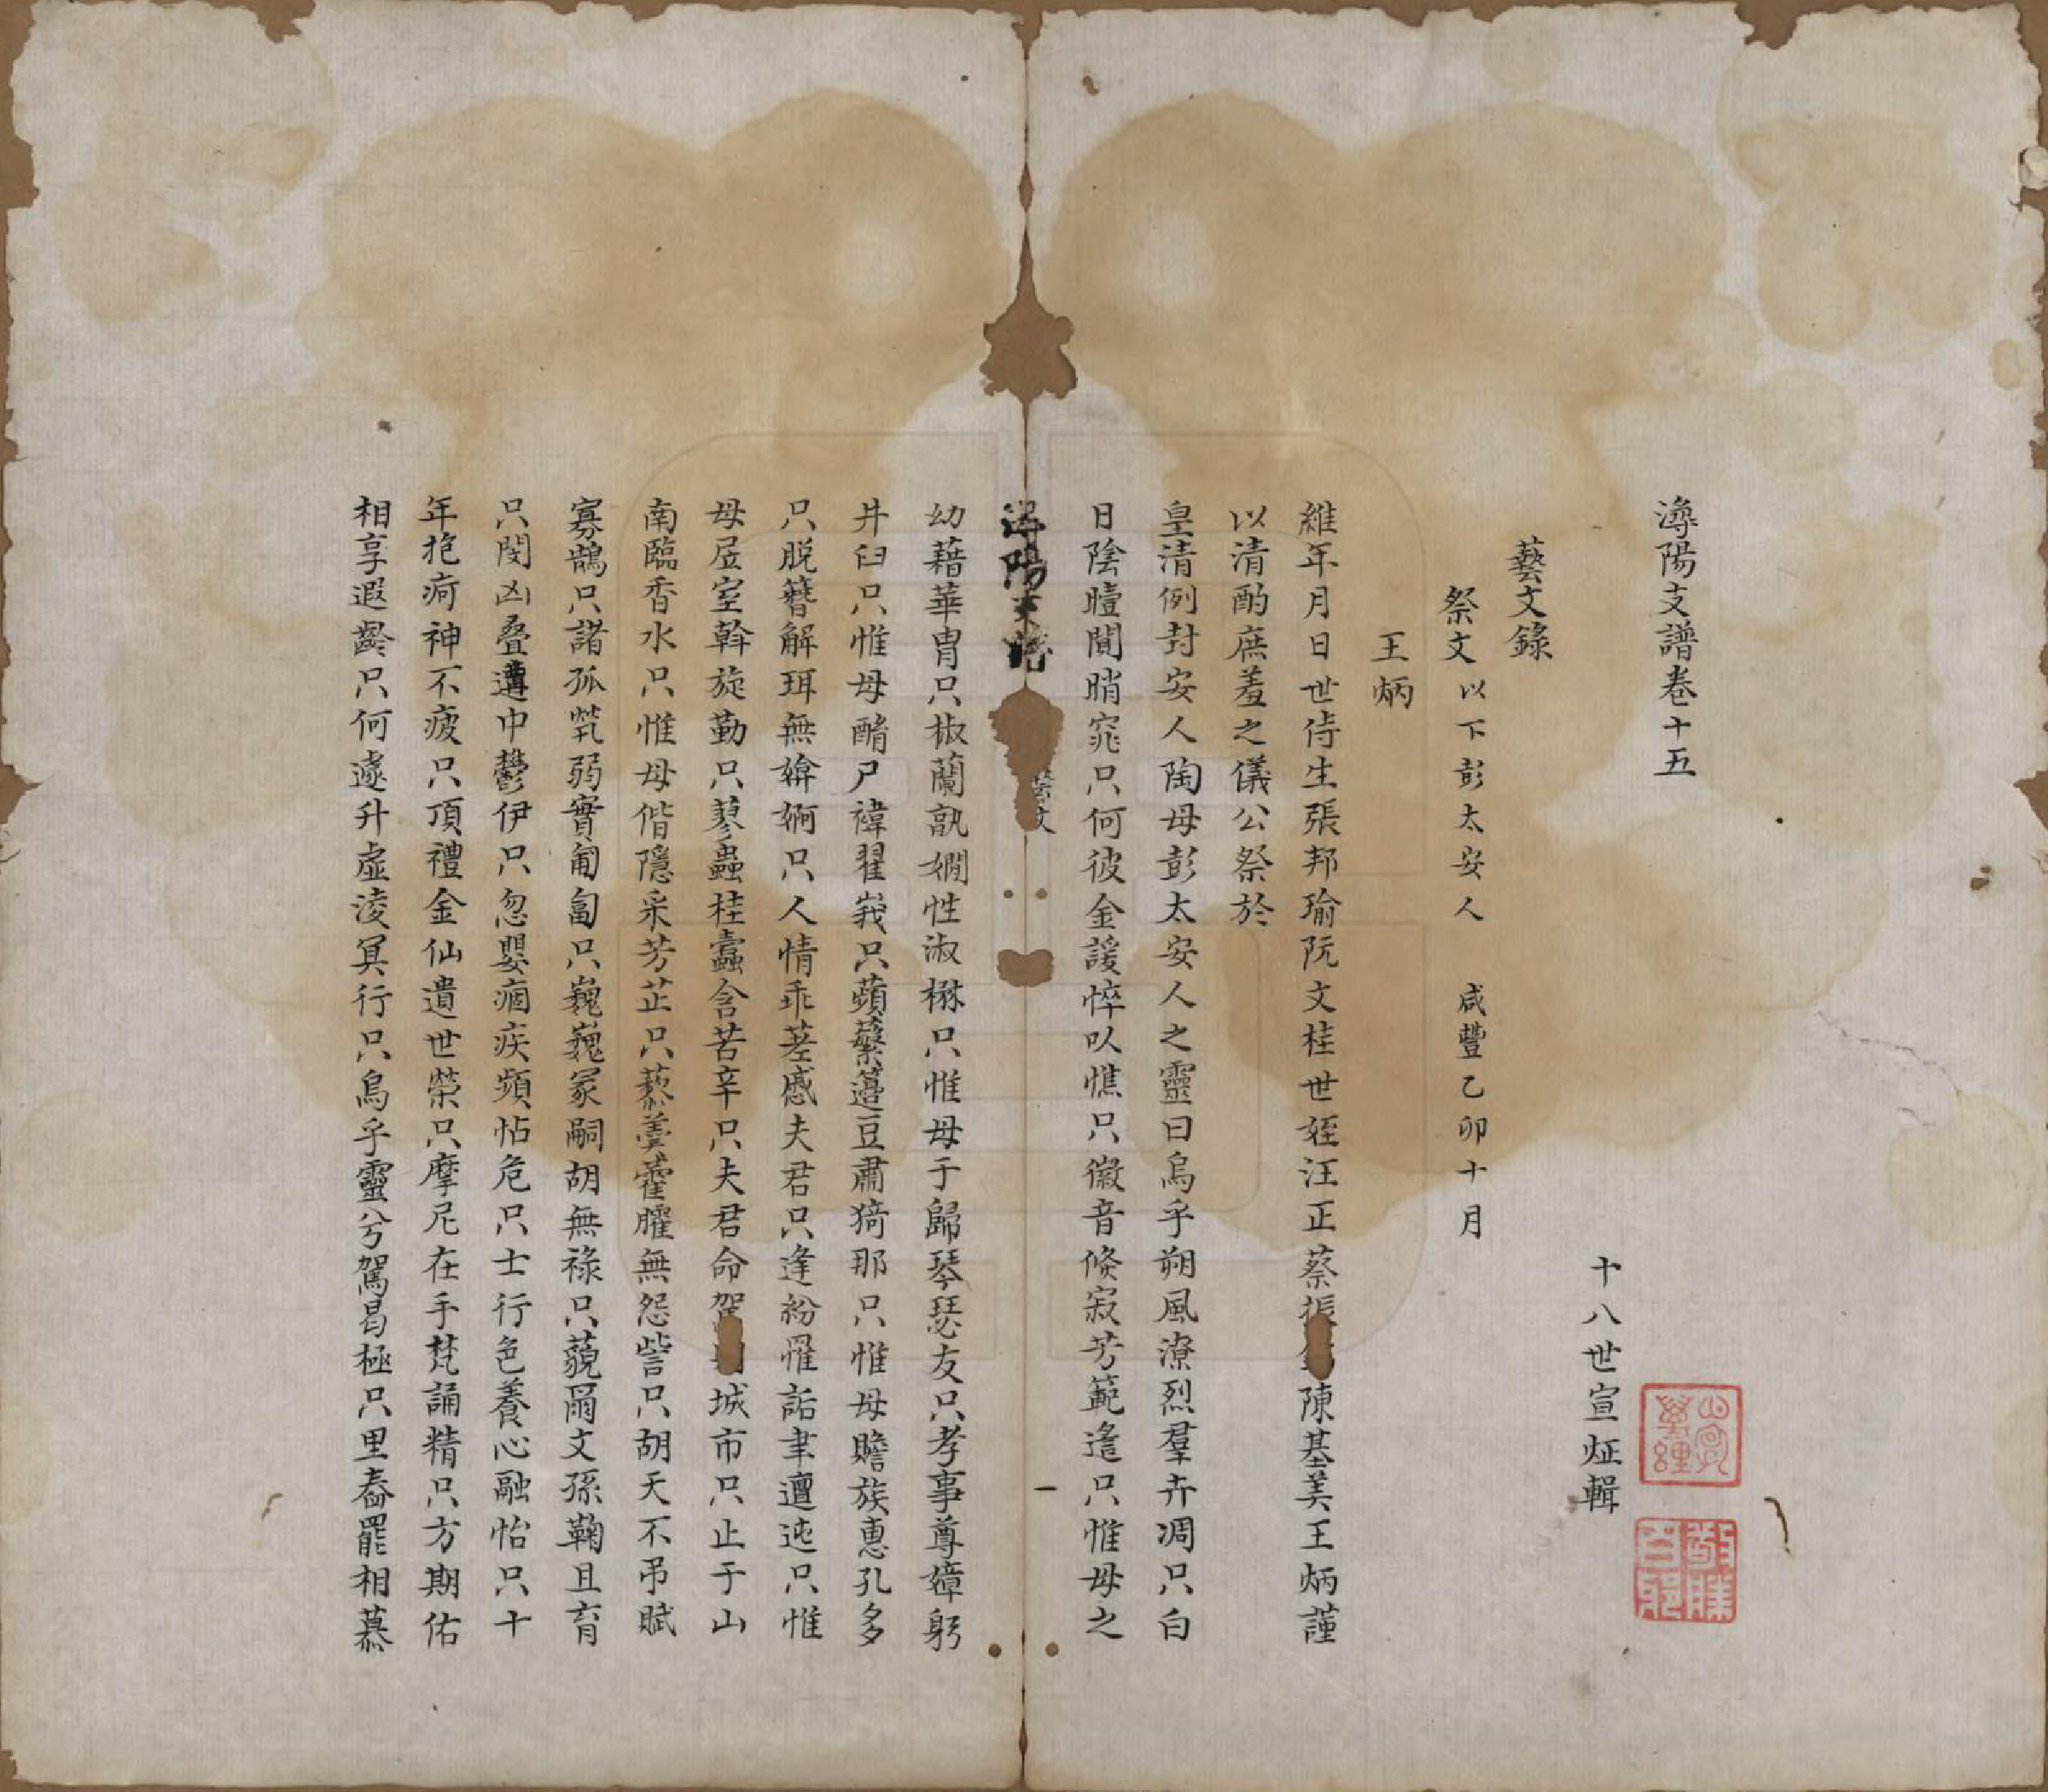 潯陽支譜卷十五
十八世宣炡輯
藝文錄
祭文以下彭太安人 咸豐乙卯十月
王炳
維年月日世侍生張邦瑜阮文桂世姪汪正蔡振陳基美王炳謹
以清酌庶羞之儀公祭於
皇清例封安人陶母彭太安人之靈曰烏乎朔風潦烈羣卉凋只白
日陰曀閴晭窕只何彼金諼悴以憔只徽音倏寂芳範遙只惟母之
潯陽支譜
藝文
一
幼藉華胄只椒蘭孰嫺性淑楙只惟母于歸琴瑟友只孝事尊嫜躬
井臼只惟母酳尸褘翟峩只蘋蘩籩豆肅猗那只惟母贍族惠孔多
只脫簪解珥無媕婀只人情乖莶慼夫君只逢紛罹詬聿邅迍只惟
母居室斡旋勤只蓼蟲桂蠹含苦辛只夫君命駕城市只止于山
南臨香水只惟母偕隱采芳芷只藜羹藿臛無怨訾只胡天不弔賦
寡鵠只諸孤煢弱實匍匐只巍巍冢嗣胡無祿只藐爾文孫鞠且育
只閔凶叠遘中鬱伊只忽嬰痼疾頻帖危只士行色養心融怡只十
年抱疴神不疲只頂禮金仙遺世榮只摩尼在手梵誦精只方期佑
相享遐齡只何遽升虛淩冥行只烏乎靈兮駕曷極只里舂罷相慕